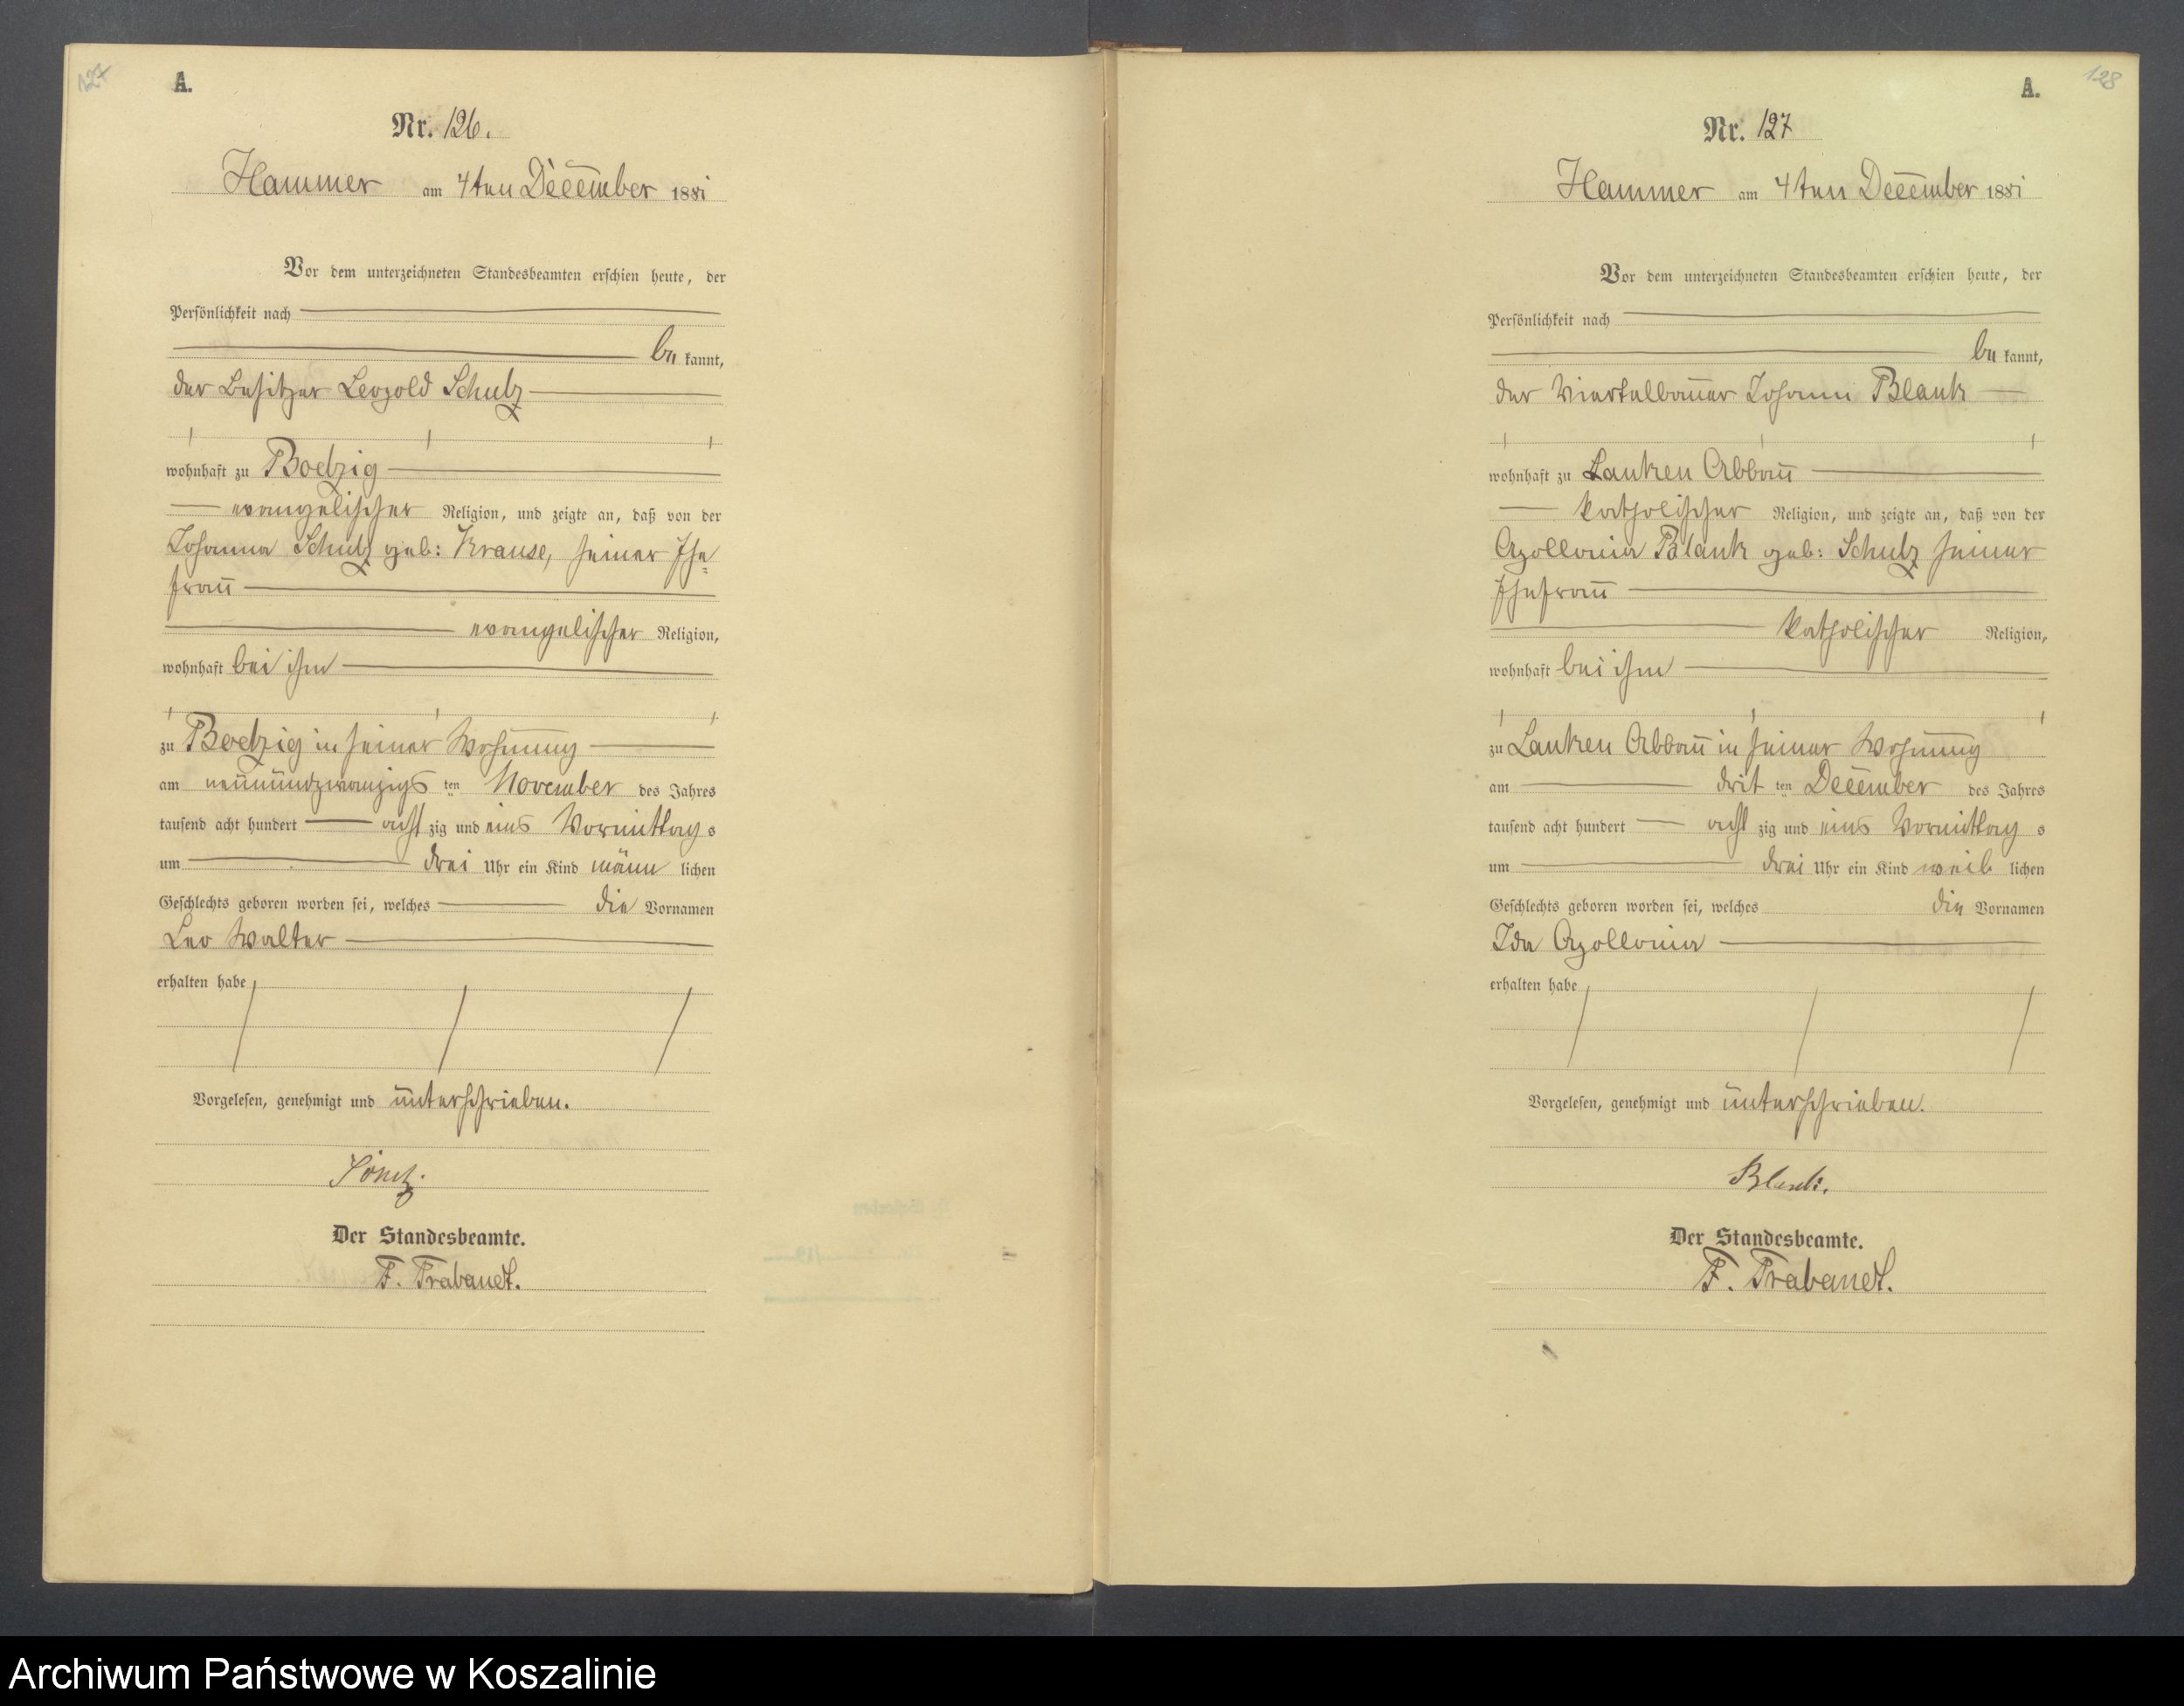 127
A.
Nr. 126.
Hammer am 4ten December 1881
Vor dem unterzeichneten Standesbeamten erschien heute, der
Persönlichkeit nach
be kannt,
der Besitzer Leopold Schulz
wohnhaft zu Boelzig
evangelischer Religion, und zeigte an, daß von der
Johanna Schulz geb: Krause, seiner Ehe=
frau
evangelischer Religion,
wohnhaft bei ihm
zu Boelzig in seiner Wohnung
am neunundzwanzigs ten November des Jahres
tausend acht hundert acht zig und eins Vormittag s
um drei Uhr ein Kind männ lichen
Geschlechts geboren worden sei, welches die Vornamen
Leo Walter
erhalten habe
Vorgelesen, genehmigt und unterschrieben.
Der Standesbeamte.
F. Trabandt.
128
A.
Nr. 127
Hammer am 4ten December 1881
Vor dem unterzeichneten Standesbeamten erschien heute, der
Persönlichkeit nach
be kannt,
der Viertelbauer Johann Blank
wohnhaft zu Lanken Abbau
katholischer Religion, und zeigte an, daß von der
Apollonia Blank geb: Schulz seiner
Ehefrau
katholischer Religion,
wohnhaft bei ihm
zu Lanken Abbau in seiner Wohnung
am drit ten December des Jahres
tausend acht hundert acht zig und eins Vormittag s
um drei Uhr ein Kind weib lichen
Geschlechts geboren worden sei, welches die Vornamen
Ida Apollonia
erhalten habe
Vorgelesen, genehmigt und unterschrieben.
Blank.
Der Standesbeamte.
F. Trabandt.
Archiwum Państwowe w Koszalinie